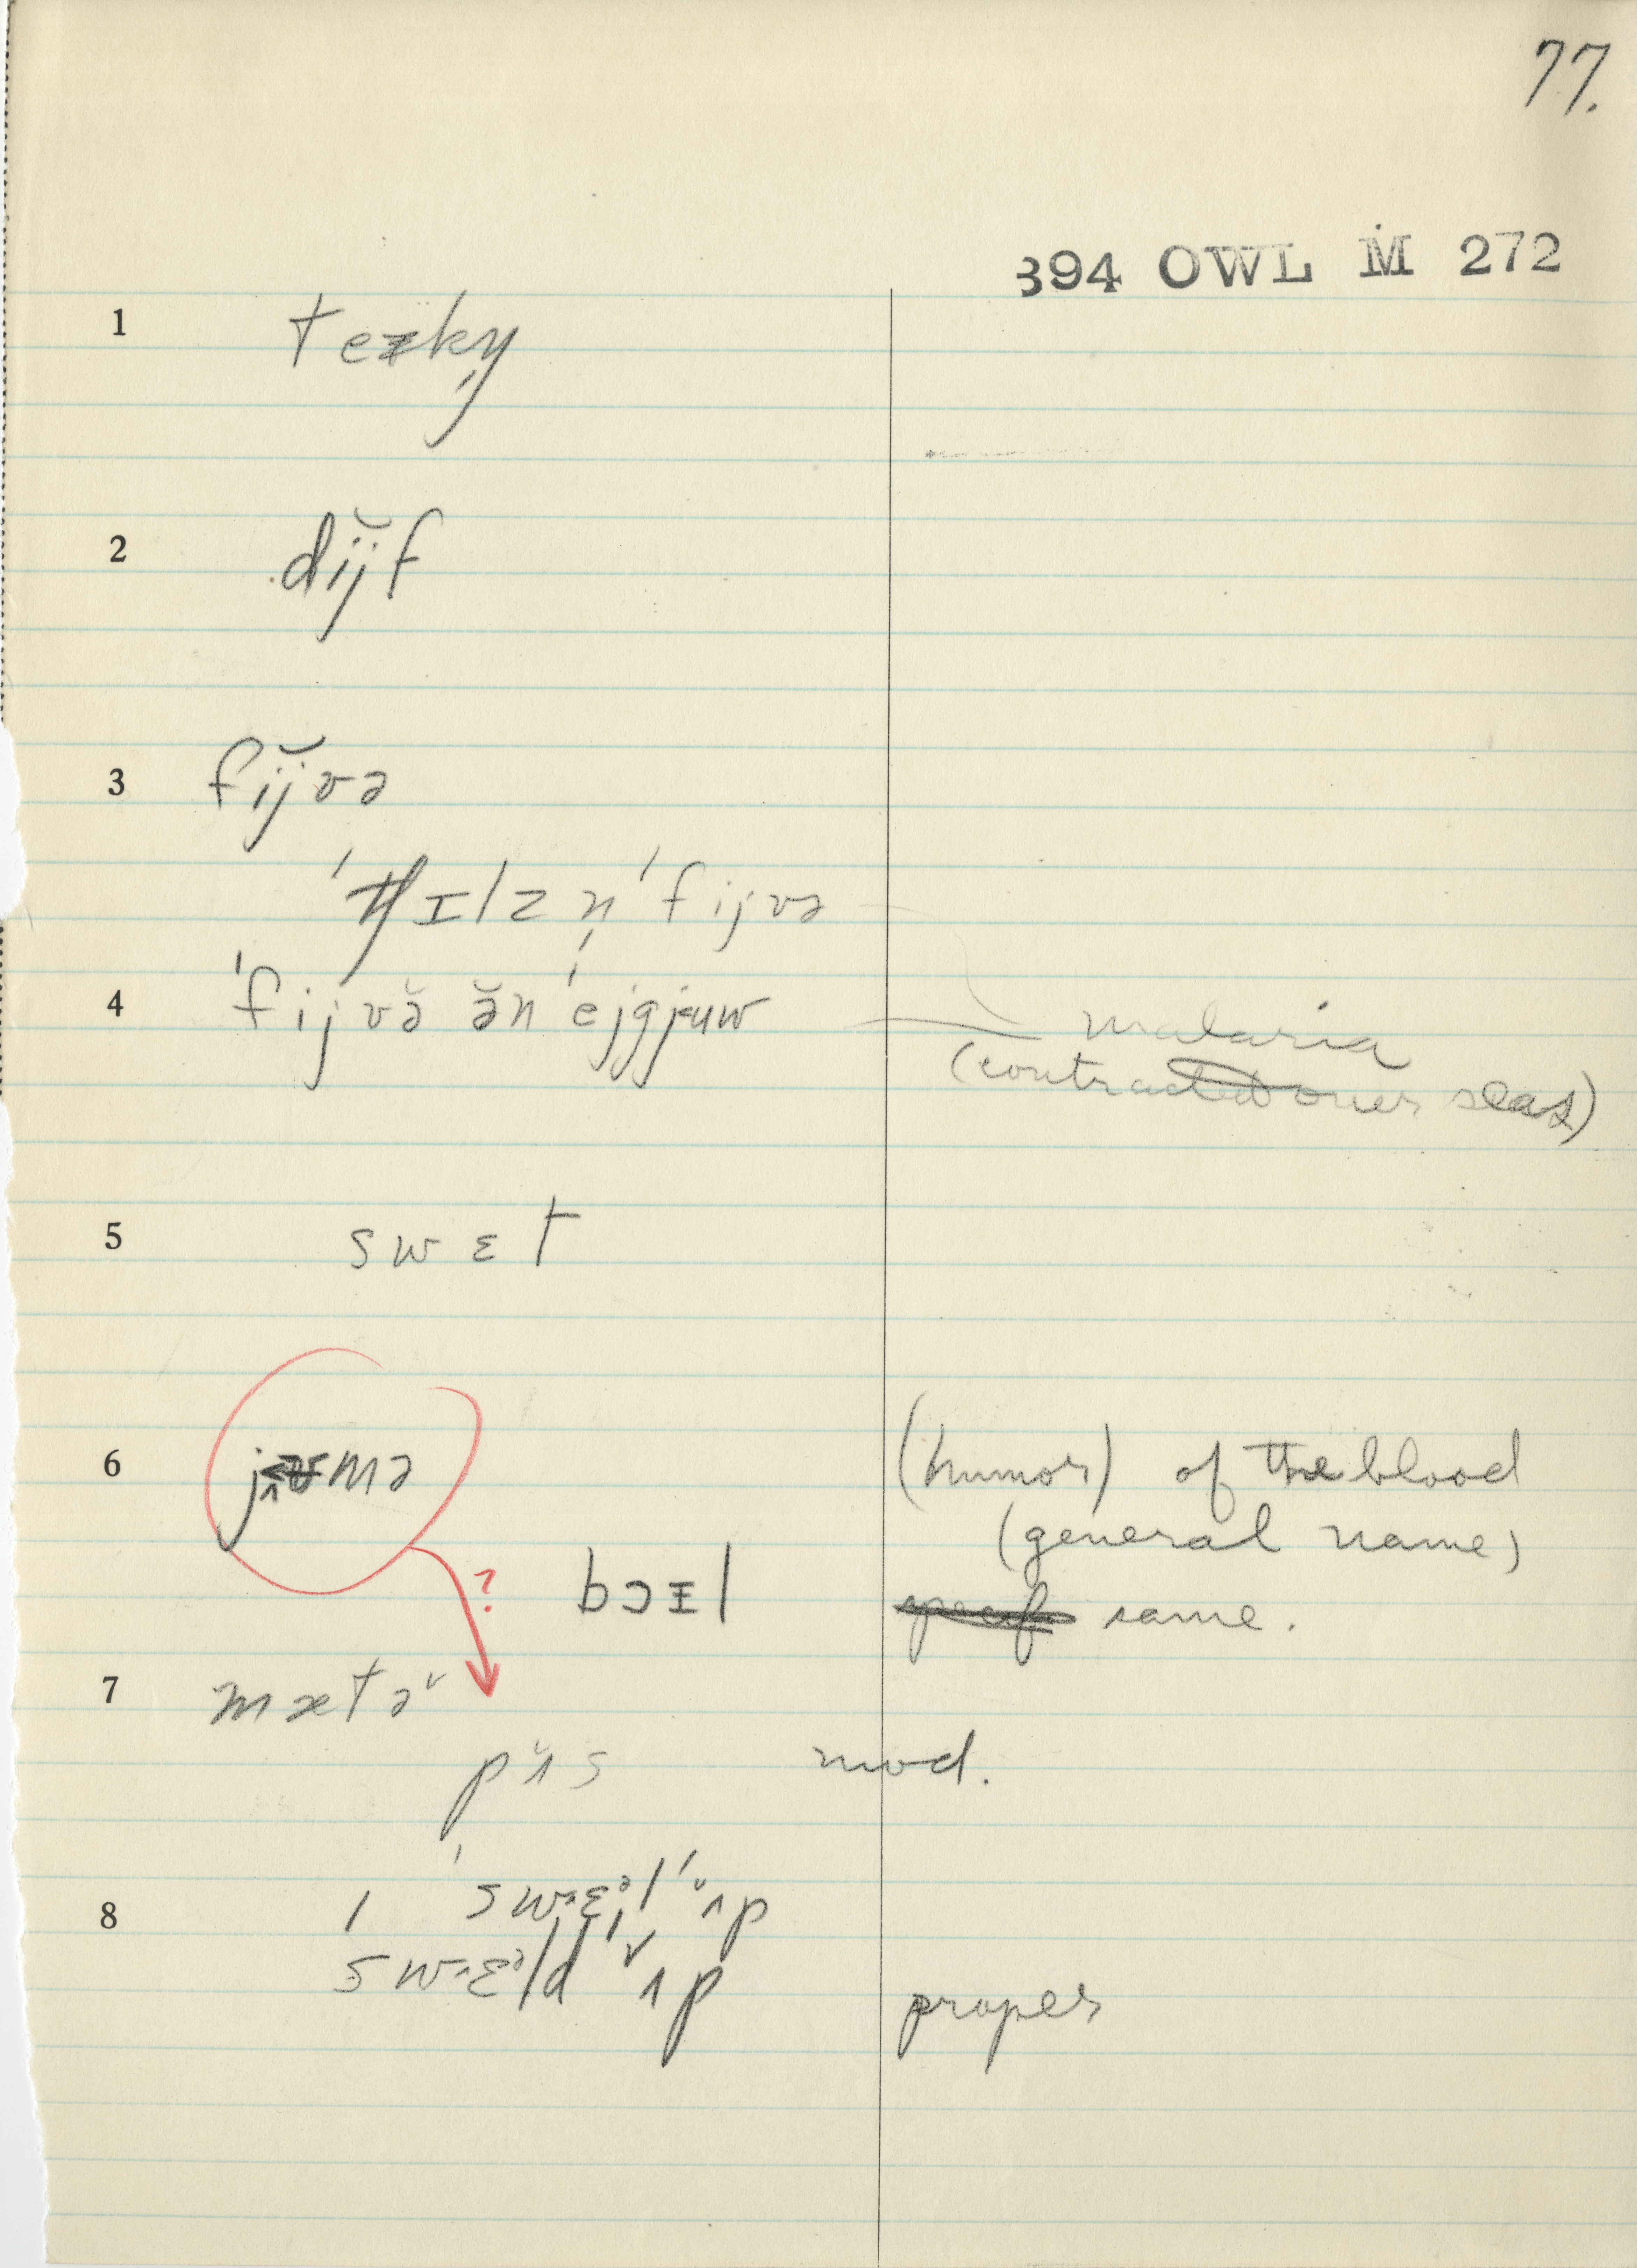 77.
394 OWL M 272
1 tezky
2 dij̆f
3 fij̆və
'tʃɪlzn̩ 'fijvə
4 'fijvə̆ ə̆n 'ejgjuw malaria
(contracted over seas)
5 swɛt
6 jʌmə (humor) of the blood
(general name)
? bɔɪl same.
7 mætə˞
pʌ̆s mod.
8 'swɛᵊl 'ʌp
swɛᵊld 'ʌp proper